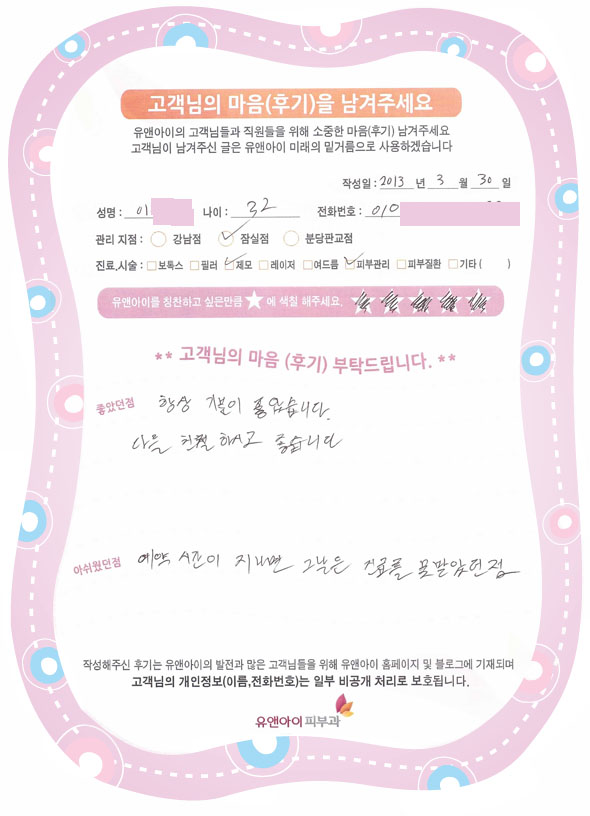 고객님의 마음(후기)을 남겨주세요
유앤아이의 고객님들과 직원들을 위해 소중한 마음(후기) 남겨주세요
고객님이 남겨주신 글은 유앤아이 미래의 밑거름으로 사용하겠습니다
작성일 : 2013 년 3 월 30 일
성명 : 나이 : 32 전화번호 : 010
관리 지점 : 강남점 잠실점 분당판교점
진료,시술 : 보톡스 필러 제모 레이저 여드름 피부관리 피부질환 기타 ( )
유앤아이를 칭찬하고 싶은만큼 ★ 에 색칠 해주세요.
** 고객님의 마음 (후기) 부탁드립니다. **
좋았던점 항상 기분이 좋았습니다.
다들 친절 하시고 좋습니다
아쉬웠던점 예약 시간이 지나면 그날은 진료를 못받았던점
작성해주신 후기는 유앤아이의 발전과 많은 고객님들을 위해 유앤아이 홈페이지 및 블로그에 기재되며
고객님의 개인정보(이름,전화번호)는 일부 비공개 처리로 보호됩니다.
유앤아이 피부과